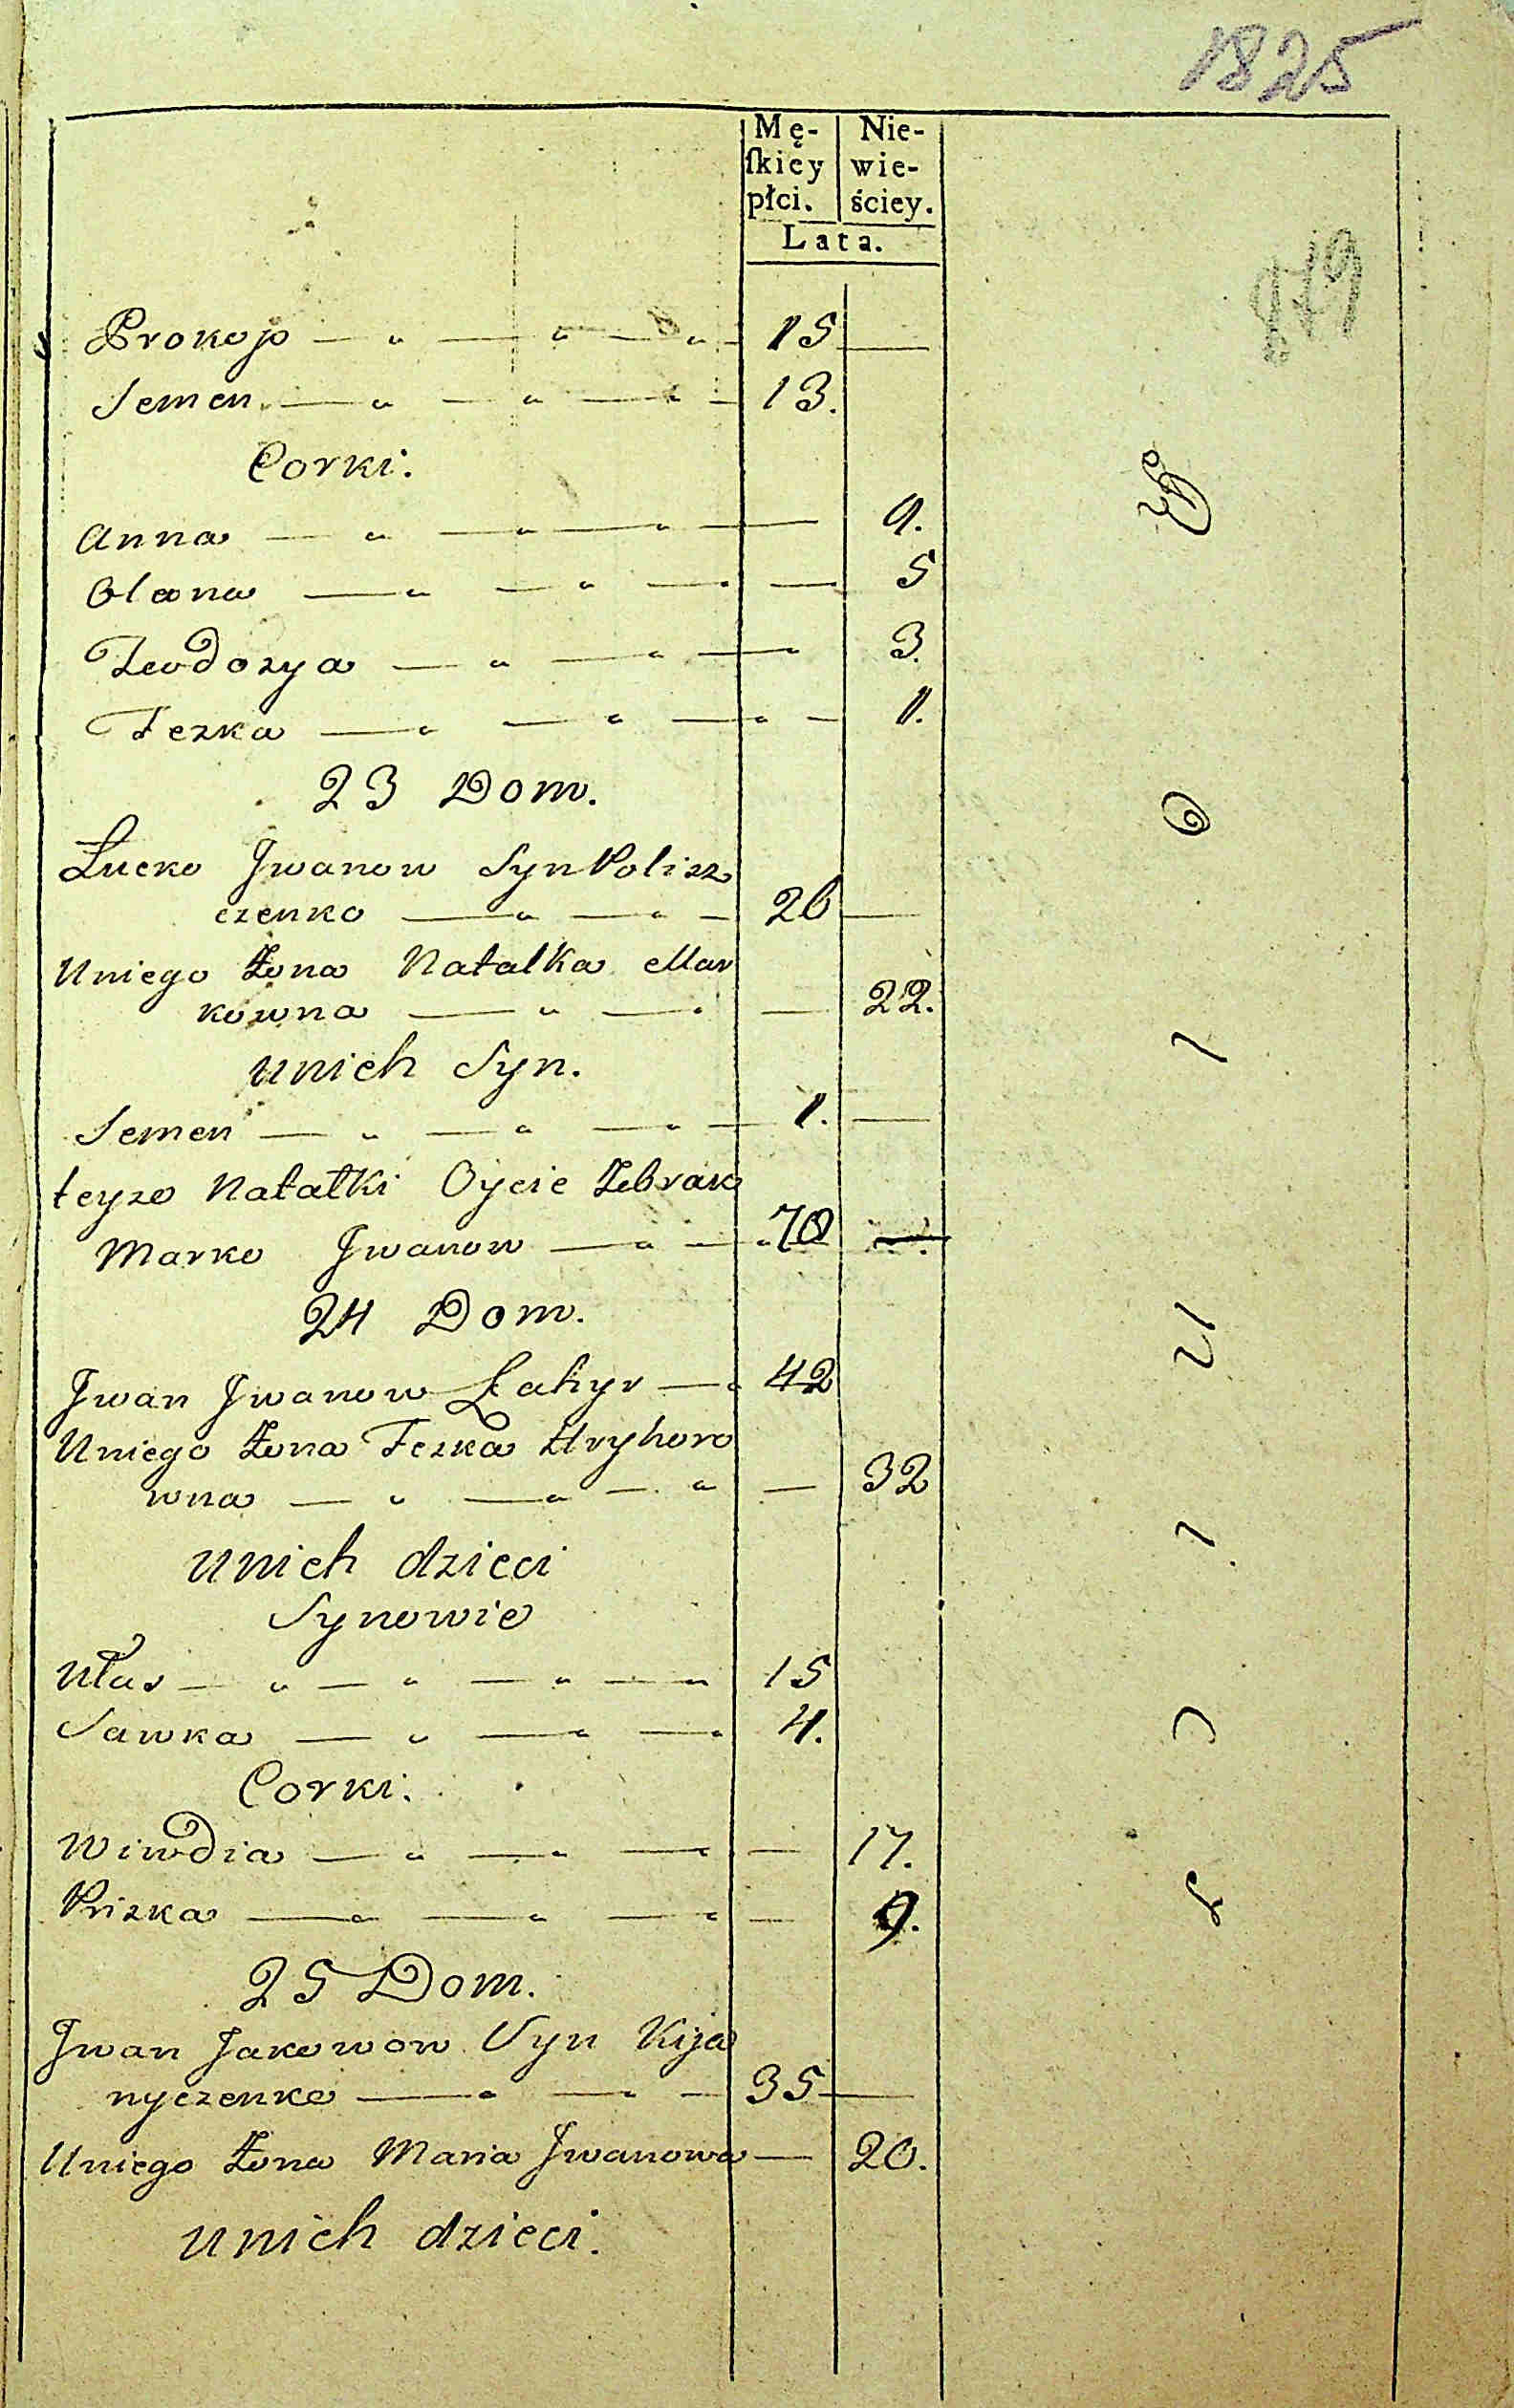 1825
Mę- Nie-
ſkiey wie-
płci. ściey.
Lata.
879
Prokop — " — " — " — 15 —
Semen — " — " — " — 13.
Corki.
Anna — " — " — " — 9.
Olena — " — " — " — 5
Teodozya — " — " — 3.
Fezka — " — " — " — 1.
23 Dom.
Łucko Jwanow Syn Polisz
czenko — " — " — 26 —
Uniego Żona Natalka Mar
kowna — " — " — 22.
unich Syn.
Semen — " — " — " — 1. —
teyze Natałki Oycie Żebrak
Marko Jwanow — " — " 70 —
24 Dom.
Jwan Jwanow Łahyr — " 42
Uniego Żona Fezka Hryhoro
wna — " — " — " — 32
unich dzieci
Synowie
Ułas — " — " — " — " 15
Sawka — " — " — " 4.
Corki.
Wiwdia — " — " — " — 17.
Priska — " — " — " — 9.
25 Dom.
Jwan Jakowow Syn Kija
nyczenko — " — " — 35 —
Uniego Żona Maria Jwanowa — 20.
unich dzieci.